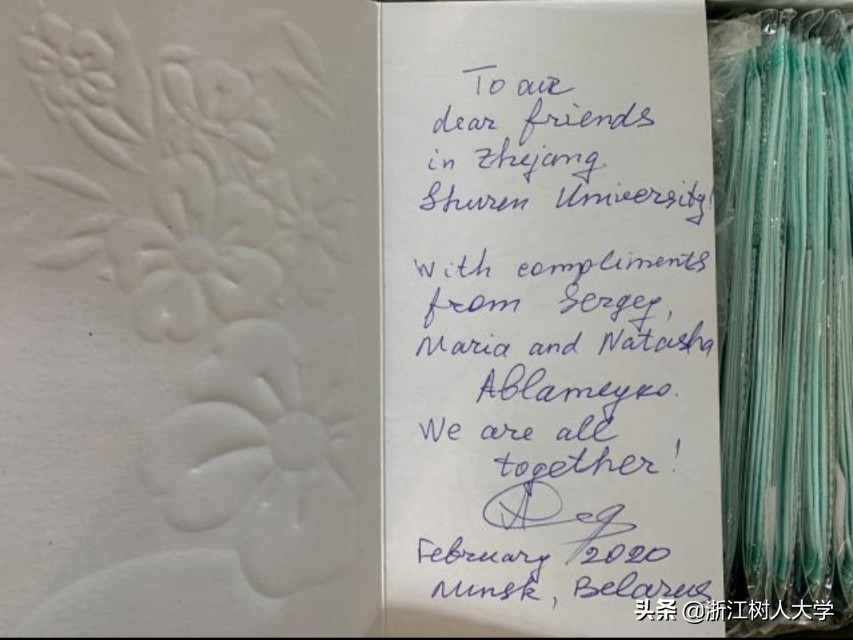 To our
dear friends
in Zhejang
Shuren University!
With compliments
from Sergey,
Maria and Natasha
Ablameyko.
We are all
together!
February 2020
Minsk, Belarus
头条 @浙江树人大学